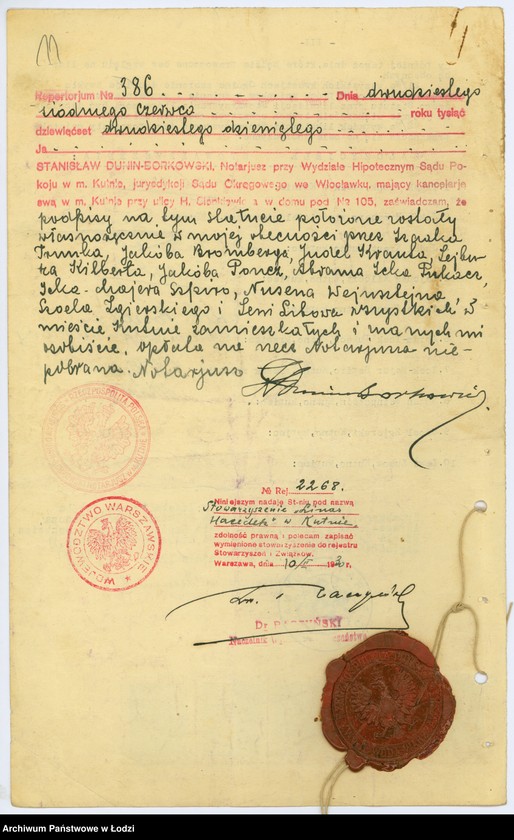 11
Repertorjum No 386 Dnia dwudziestego
siódmego czerwca roku tysiąc
dziewięćset dwudziestego dziewiątego
Ja
STANISŁAW DUNIN-BORKOWSKI, Notarjusz przy Wydziale Hipotecznym Sądu Po-
koju w m. Kutnie, jurysdykcji Sądu Okręgowego we Włocławku, mający kancelarje
swą w m. Kutnie przy ulicy H. Sienkiewicza w domu pod № 105, zaświadczam, że
podpisy na tym statucie położone zostały
własnoręcznie w mojej obecności przez Izaaka
Trunka, Jakóba Bromberga, Judel Krauta, Lejbu-
Kilberta, Jakóba Ponez, Abrama Icka Pukacz,
Icka-Majera Szpiro, Nusena
Zgierskiego i wszystkich w
mieście Kutnie zamieszkałych i znanych mi
osobiście, opłata na rzecz Notarjusza nie-
pobrana. Notarjusz
Dunin Borkowski
№ Rej. 2268.
Niniejszym nadaję St-niu pod nazwą
Stowarzyszenie „Linas
Hacedek" w Kutnie
zdolność prawną i polecam zapisać
wymienione stowarzyszenie do rejestru
Stowarzyszeń i Związków.
Warszawa, dnia 10/II 1930 r.
Dr
Naczelnik
WOJEWÓDZTWO WARSZAWSKIE
Archiwum Państwowe w Łodzi